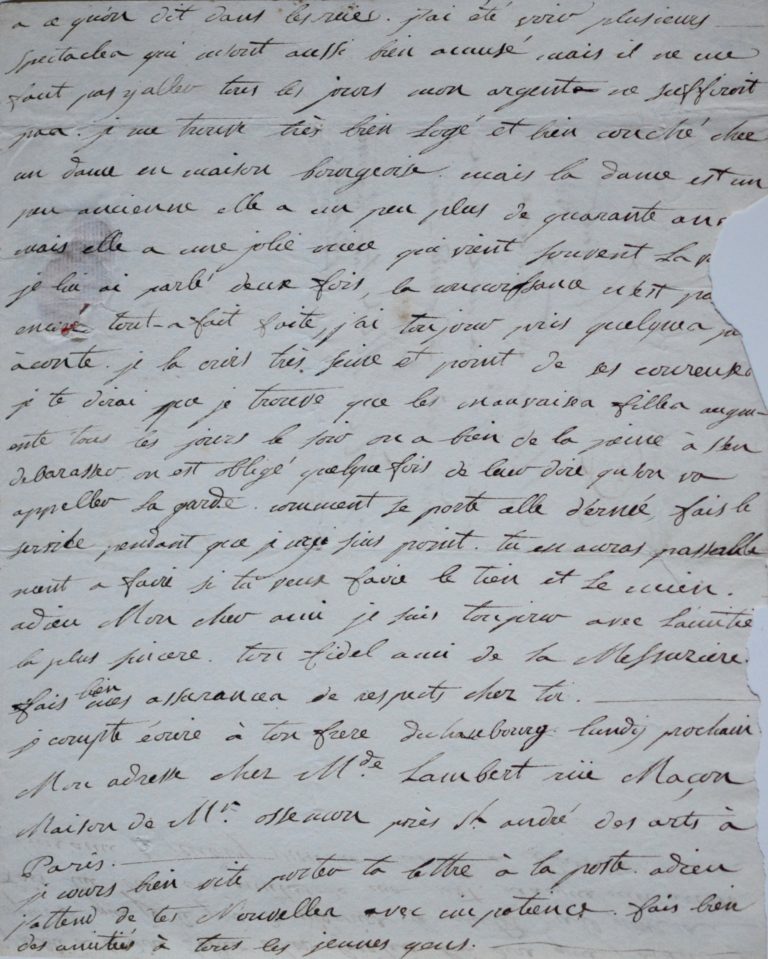 a ce qu'on dit dans les rües. j'ai été voir plusieurs
spectacles qui m'ont aussi bien amusé mais il ne me
faut pas y aller tous les jours mon argent ne suffiroit
pas. je me trouve très bien logé et bien couché chez
un dame en maison bourgeoise. mais la dame est un
peu ancienne elle a un peu plus de quarante ans
mais elle a une jolie niece qui vient souvent la
je lui ai parlé deux fois, la connoissance n'est pas
encore tout-a fait faite, j'ai toujour pris quelques
àconte. je la crois très fine et point de ses coureuses
je te dirai que je trouve que les mauvaises filles augm-
ente tous les jours le soir on a bien de la peine à s'en
debarasser on est obligé quelque fois de leur dire qu'on va
appeller la garde. comment se porte elle d'ernée, fais le
service pendant que je n'y suis point. tu en auras passable
ment a faire si tu veux faire le tien et le mien.
adieu Mon cher ami je suis toujour avec L'amitié
la plus sincere. ton fidel ami de la Messuziere.
fais bien mes assurances de respects chez toi.
je compte écrire à ton frere duhaubourg lundij prochain
Mon adresse chez Mde Lambert rüe Maçon
Maison de Mr. ossemon près st. andré des arts à
Paris.
je cours bien vite porter ta lettre à la poste. adieu
j'attend de tes Nouvelles avec impatience. fais bien
des amitiés à tous les jeunes gens.